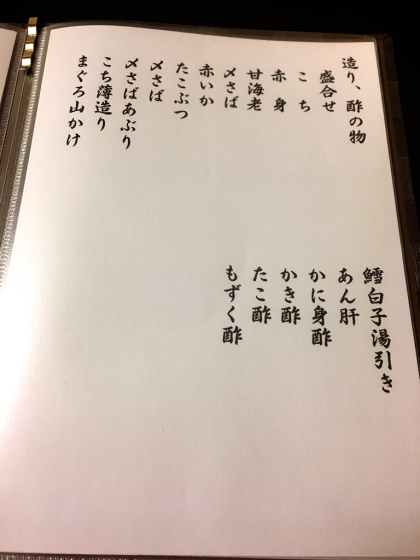 造り、酢の物
盛合せ
こち
赤身
甘海老
〆さば
赤いか
たこぶつ
〆さば
〆さばあぶり
こち薄造り
まぐろ山かけ
鱈白子湯引き
あん肝
かに身酢
かき酢
たこ酢
もずく酢